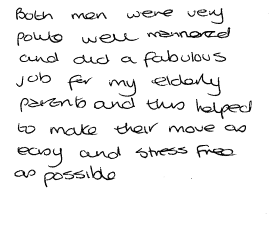 Both men were very
polite well mannered
and did a fabulous
job for my elderly
parents and this helped
to make their move as
easy and stress free
as possible